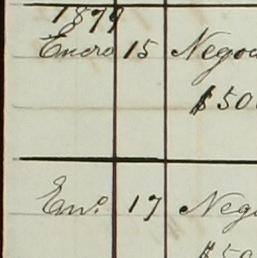 1879
Enero 15 Negoc
$ 500
En.º 17 Nego
$ 50